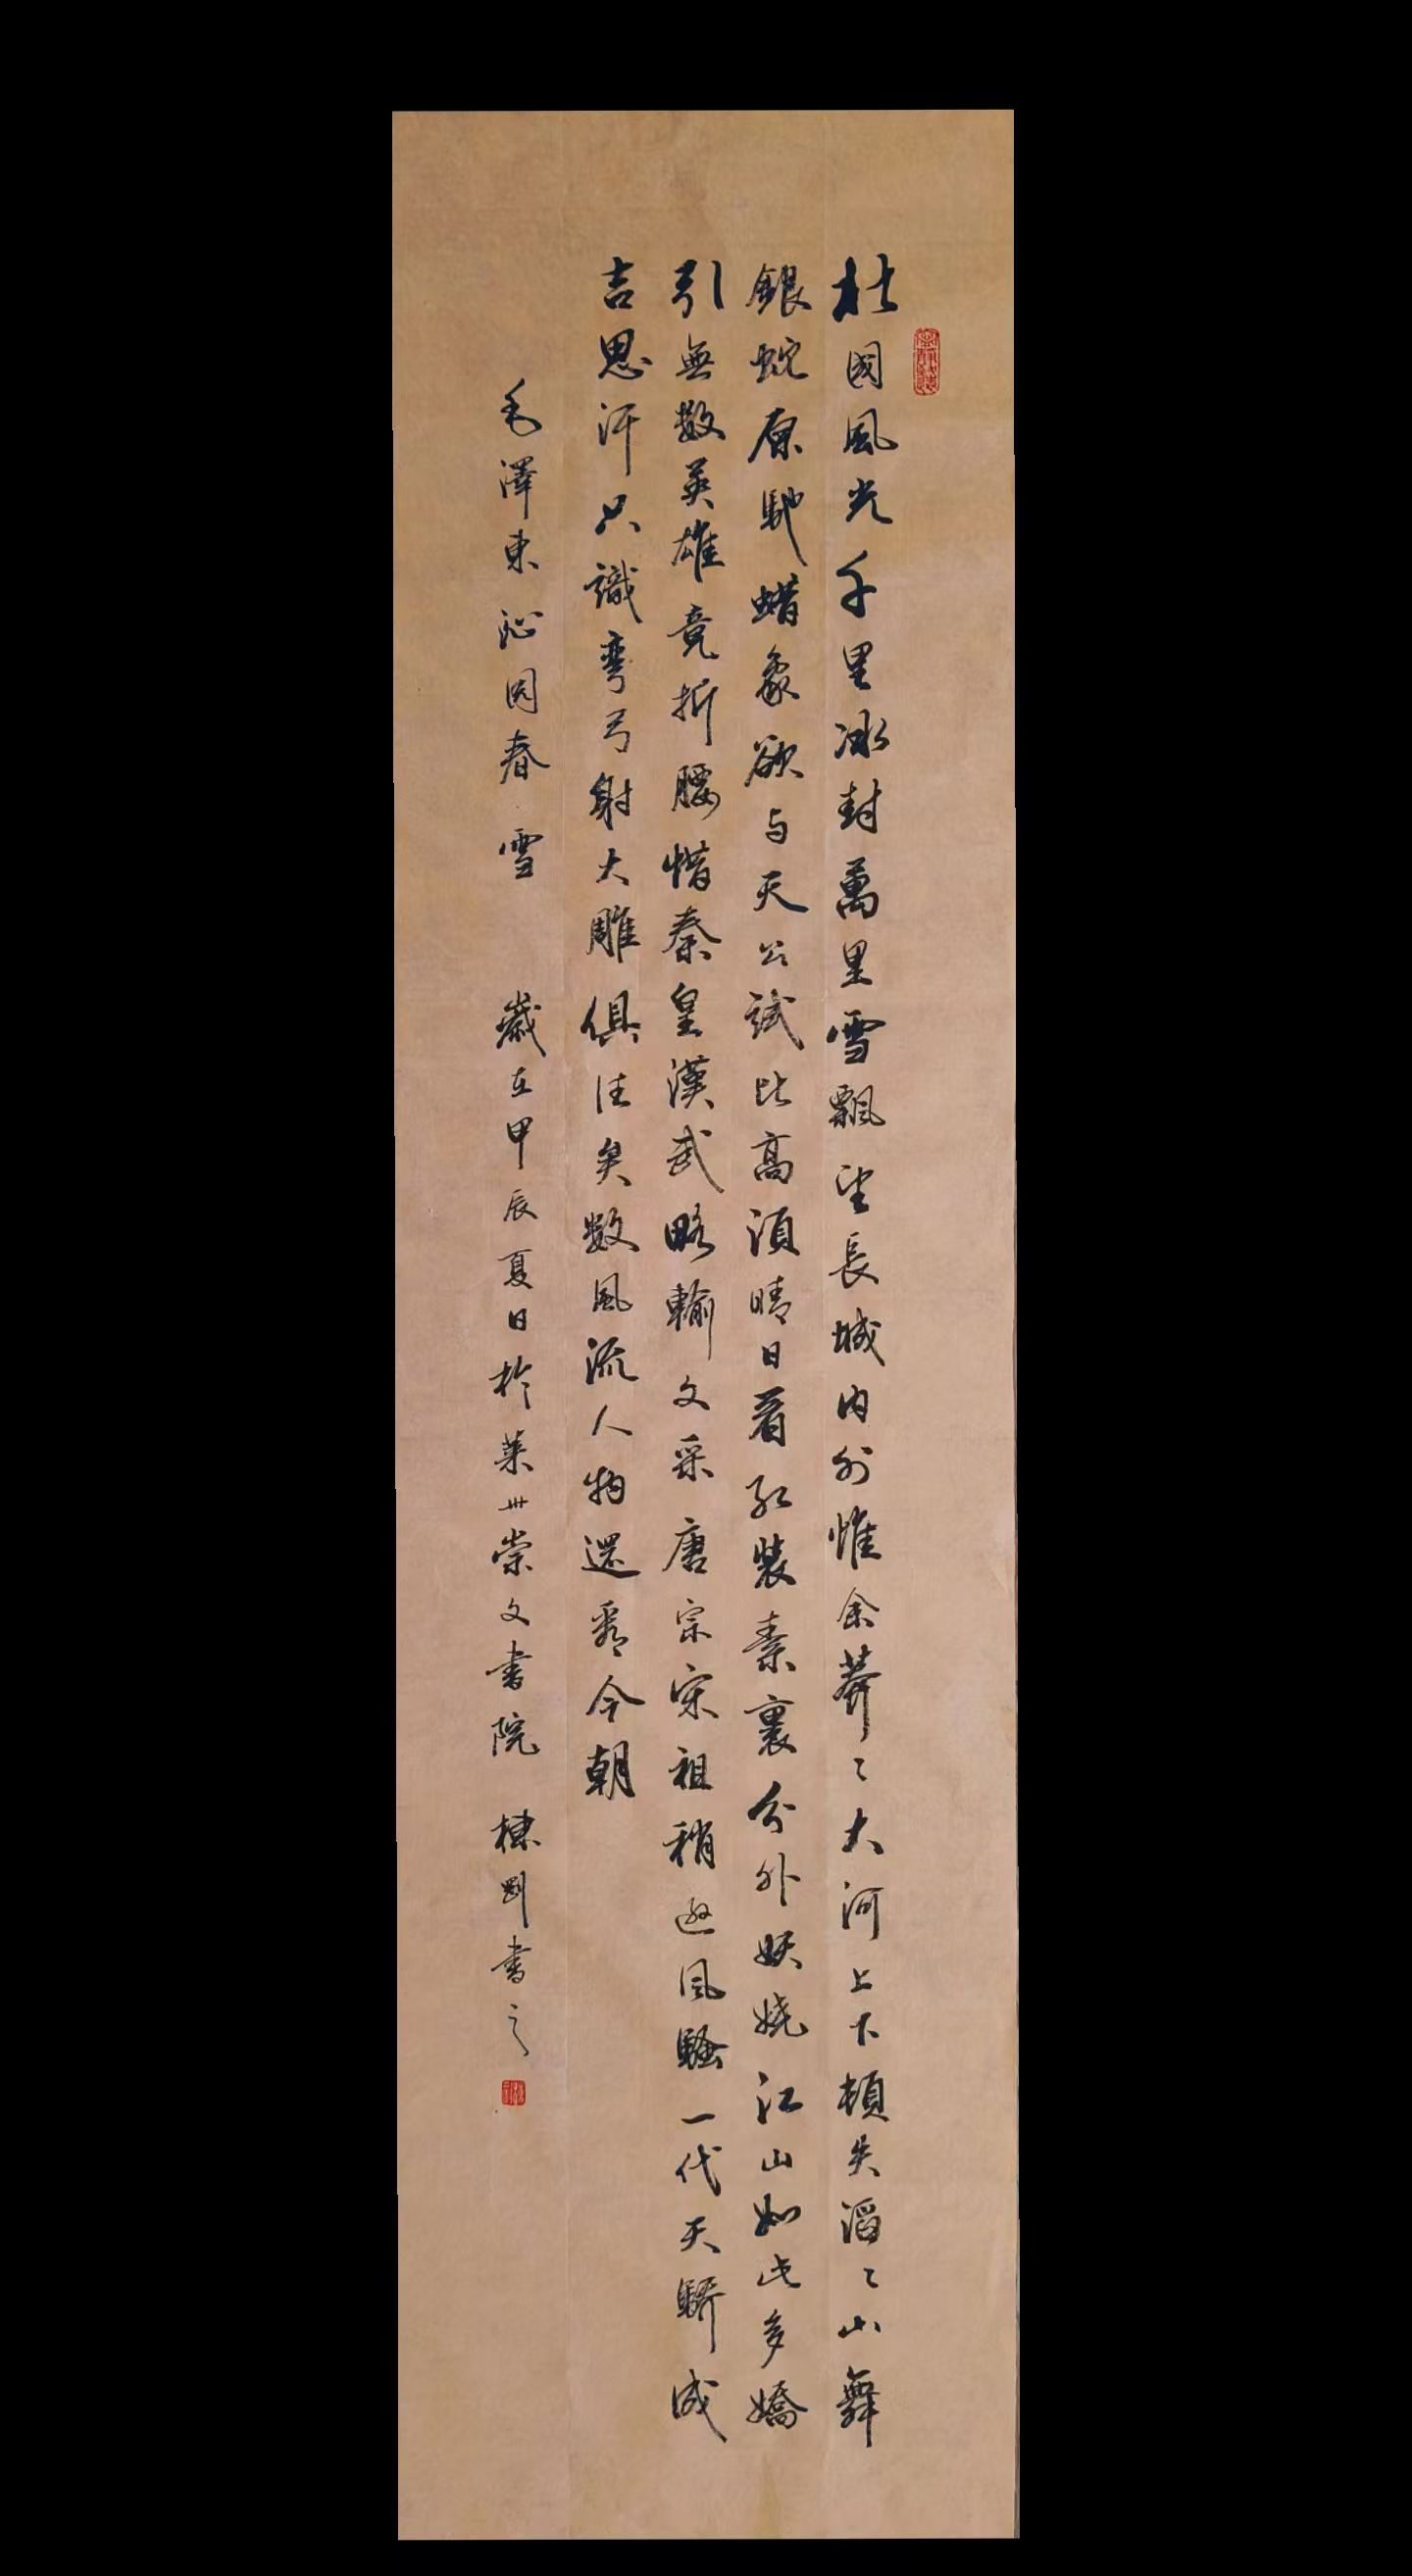 北國風光千里冰封萬里雪飄望長城内外惟余莽〻大河上下頓失滔〻山舞
銀蛇原馳蜡象欲与天公試比高須晴日看紅裝素裹分外妖嬈江山如此多嬌
引無數英雄竞折腰惜秦皇漢武略輸文采唐宗宋祖稍逊風騷一代天驕成
吉思汗只識彎弓射大雕俱往矣數風流人物還看今朝
毛澤東沁园春 雪 歲在甲辰夏日於莱州崇文書院 棟剛書之